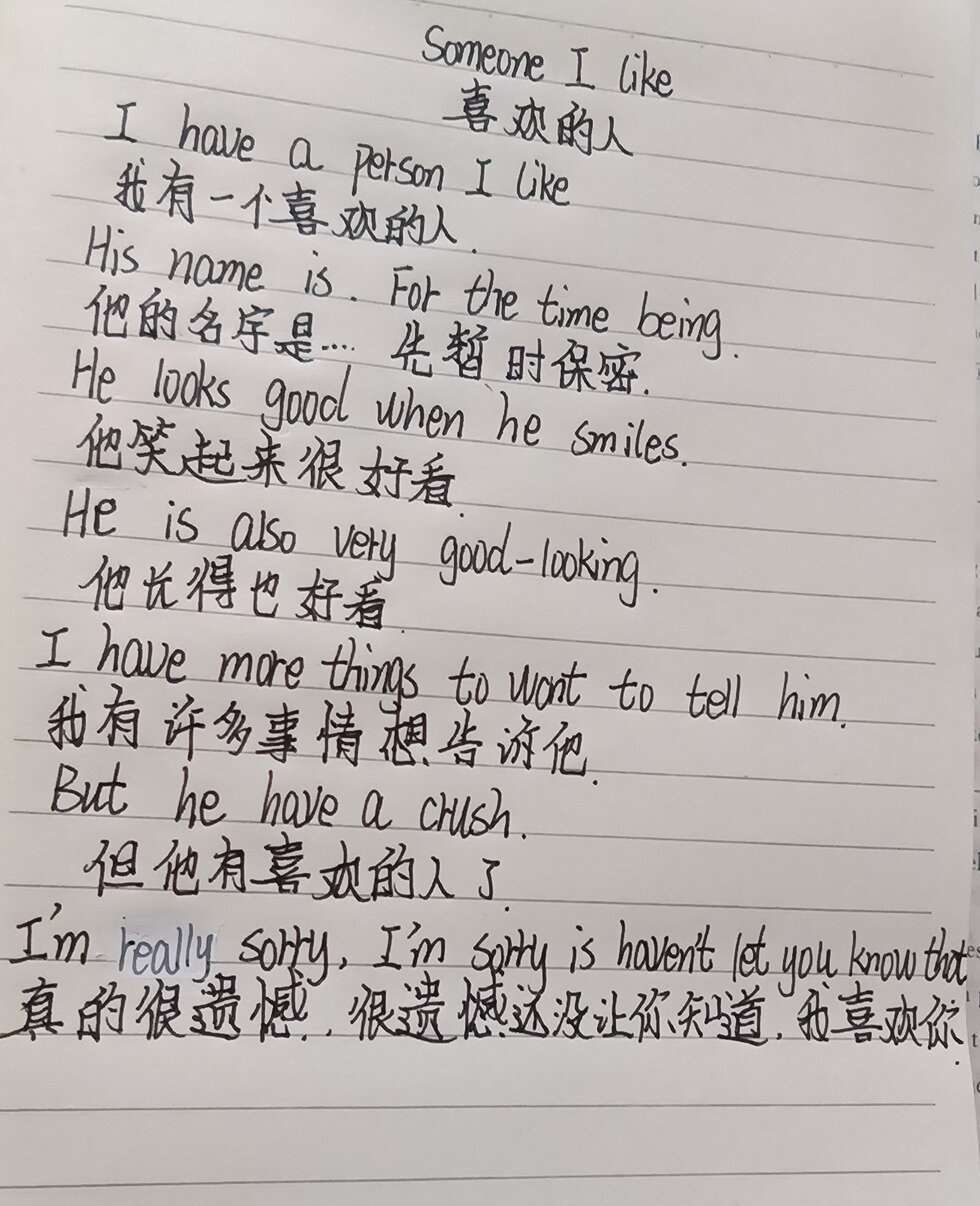 Someone I like
喜欢的人
I have a person I like
我有一个喜欢的人.
His name is. For the time being.
他的名字是.... 先暂时保密.
He looks good when he smiles.
他笑起来很好看.
He is also very good-looking.
他长得也好看.
I have more things to want to tell him.
我有许多事情想告诉他.
But he have a crush.
但他有喜欢的人了.
I'm really sorry, I'm sorry is haven't let you know that
真的很遗憾. 很遗憾还没让你知道. 我喜欢你.